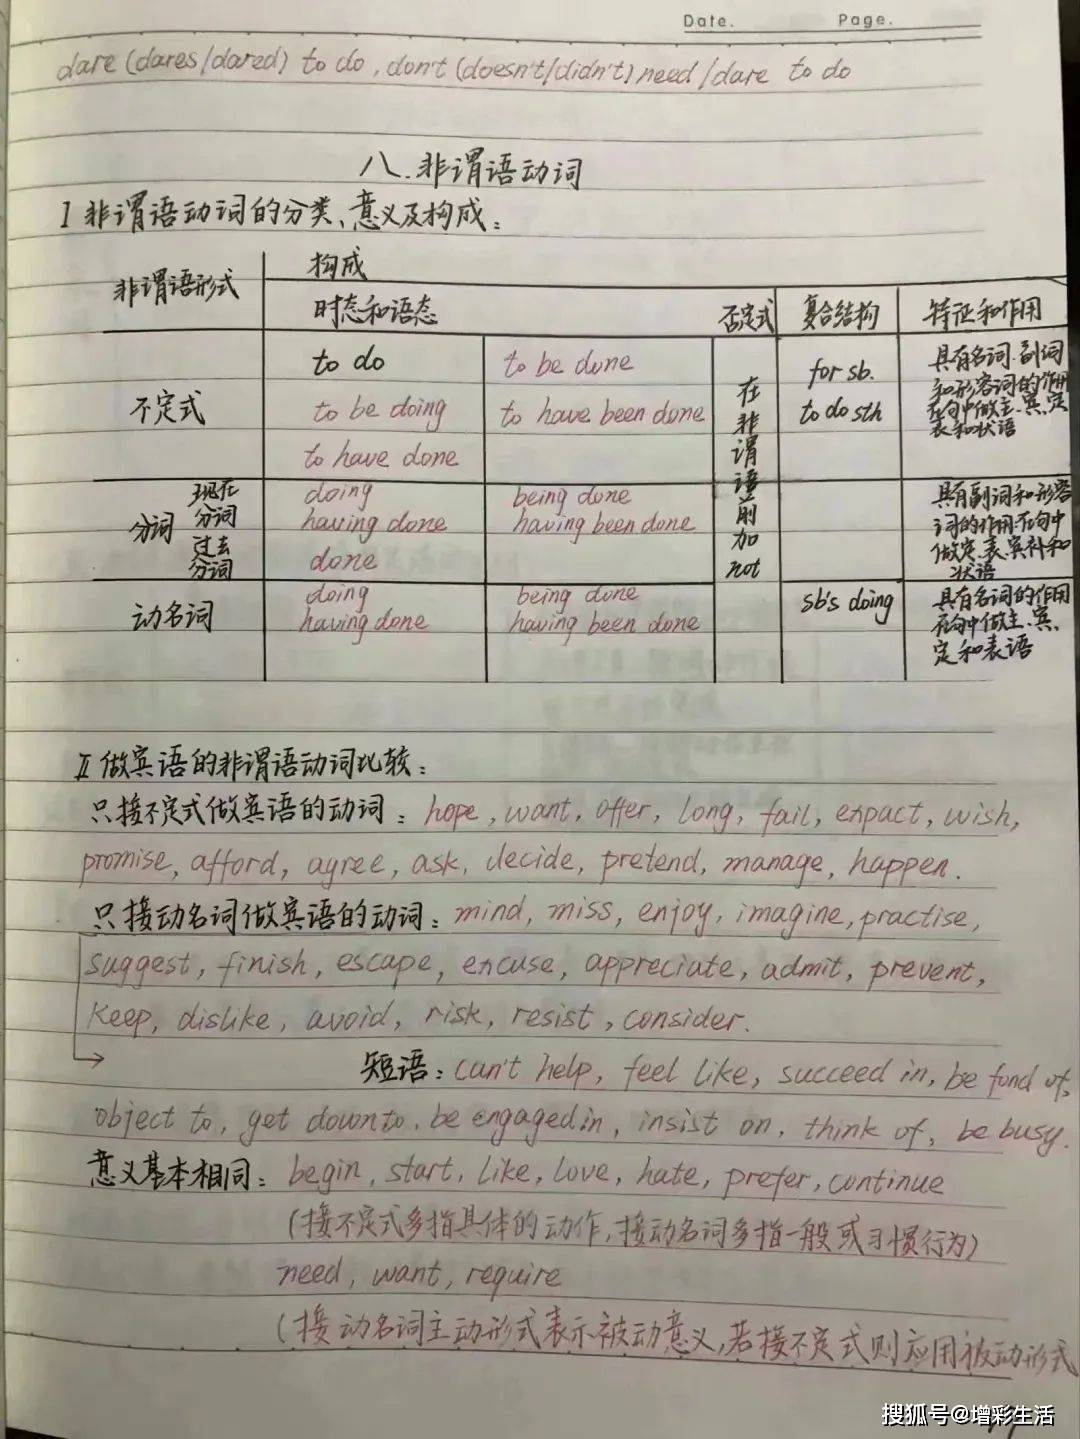 Date. Page.
dare (dares/dared) to do, don't (doesn't/didn't) need/dare to do
八.非谓语动词
I 非谓语动词的分类、意义及构成:
非谓语形式 构成
时态和语态 否定式 复合结构 特征和作用
不定式 to do to be done 在非谓语前加not for sb. 具有名词.副词
to be doing to have been done to do sth 和形容词的作用
to have done 在句中做主、宾、定
表和状语
分词 现在分词 doing being done 具有副词和形容
having done having been done 词的作用.在句中
过去分词 done 做定、表、宾补和
状语
动名词 doing being done sb's doing 具有名词的作用
having done having been done 在句中做主、宾、
定和表语
II 做宾语的非谓语动词比较:
只接不定式做宾语的动词: hope, want, offer, long, fail, expact, wish,
promise, afford, agree, ask, decide, pretend, manage, happen.
只接动名词做宾语的动词: mind, miss, enjoy, imagine, practise,
suggest, finish, escape, excuse, appreciate, admit, prevent,
keep, dislike, avoid, risk, resist, consider.
短语: can't help, feel like, succeed in, be fond of,
object to, get down to, be engaged in, insist on, think of, be busy.
意义基本相同: begin, start, like, love, hate, prefer, continue
(接不定式多指具体的动作,接动名词多指一般或习惯行为)
need, want, require
(接动名词主动形式表示被动意义,若接不定式则应用被动形式
搜狐号@增彩生活